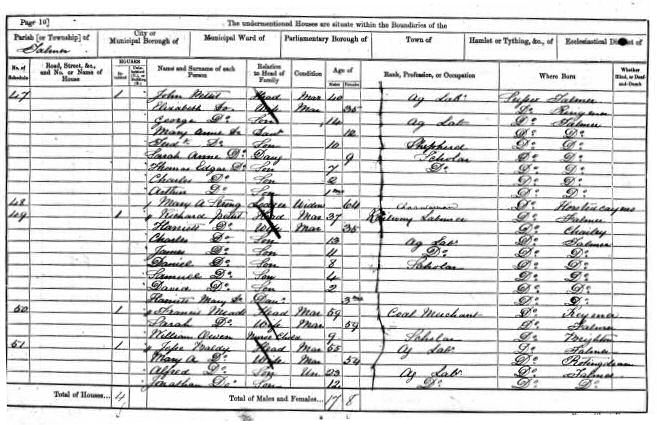 Page 10]
The undermentioned Houses are situate within the Boundaries of the
Parish [or Township] of
Falmer
City or Municipal Borough of
Municipal Ward of
Parliamentary Borough of
Town of
Hamlet or Tything, &c., of
Ecclesiastical District of
No. of Schedule
Road, Street, &c., and No. or Name of House
HOUSES
Name and Surname of each Person
Relation to Head of Family
Condition
Age of
Males
Females
Rank, Profession, or Occupation
Where Born
Whether Blind, or Deaf-and-Dumb
47 1 John Pettet Head Mar 40 Ag Lab Sussex Falmer
Elizabeth Do Wife Mar 35 Do Ringmer
George Do Son 14 Ag Lab Do Falmer
Mary Anne Do 12 Do Do
Fredk Do Son 10 Shepherd Do Do
Sarah Anne Do Daug 9 Scholar Do Do
Thomas Edgar Do Son 7 Do Do Do
Charles Do Son 2 Do Do
Arthur Do Son Do Do
48 Mary A Strong Lodger Widow 64 Charwoman Do
49 1 Richard Pettet Head Mar 37 Railway Labourer Do Falmer
Harriett Do Wife Mar 35 Do Chailey
Charles Do Son 13 Ag Lab Do Falmer
James Do Son 11 Do Do Do
Daniel Do Son 8 Scholar Do Do
Samuel Do Son 4 Do Do
David Do Son 2 Do Do
Harriett Mary Do Daur 3 mo Do Do
50 1 Francis Meads Head Mar 59 Coal Merchant Do Keymer
Sarah Do Wife Mar 59 Do Falmer
William Owen Nurse Child 9 Scholar Do Brighton
51 1 Head Mar 55 Ag Lab Do Falmer
Mary A Do Wife Mar 54 Do Rotingdean
Alfred Do Son Un 23 Ag Lab Do Falmer
Jonathan Do Son 12 Do Do Do
Total of Houses... 4
Total of Males and Females... 17 8